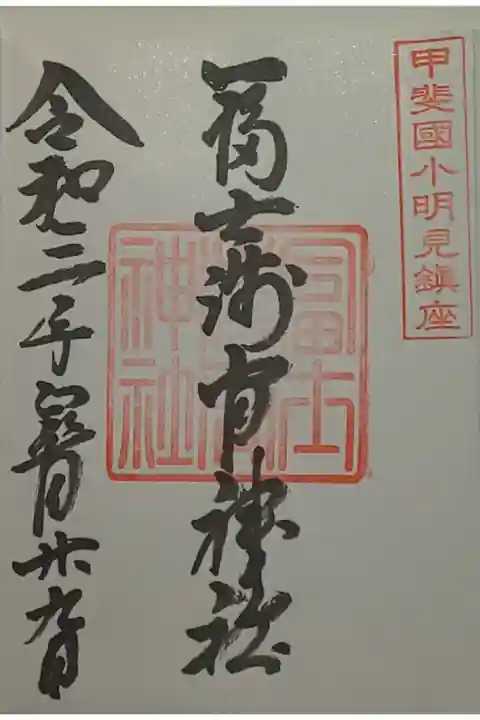 甲斐國小明見鎮座
冨士浅間神社
冨士
神社
令和二年月廿九日